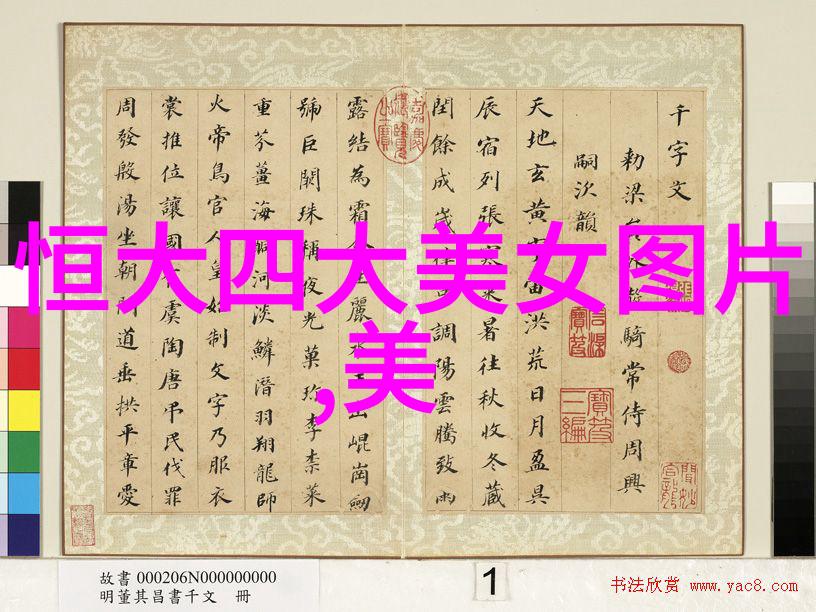 千字文
勅梁員外散騎常侍周興
嗣次韻
天地玄黃宇宙洪荒日月盈昃
辰宿列張寒來暑往秋收冬藏
閏餘成歲律呂調陽雲騰致雨
露結為霜金生麗水玉出崐崗劒
號巨闕珠稱夜光菓珎李柰菜
重芥薑海鹹河淡鱗潛羽翔龍師
火帝鳥官人皇始制文字乃服衣
裳推位讓國有虞陶唐弔民伐罪
周發殷湯坐朝問道垂拱平章愛
嘉慶御覽之寶
石渠寶笈
寶笈三編
恒大四大美女图片
,美
故書 000206N000000000
明董其昌書千文 冊
1
书法欣赏 www.yac8.com